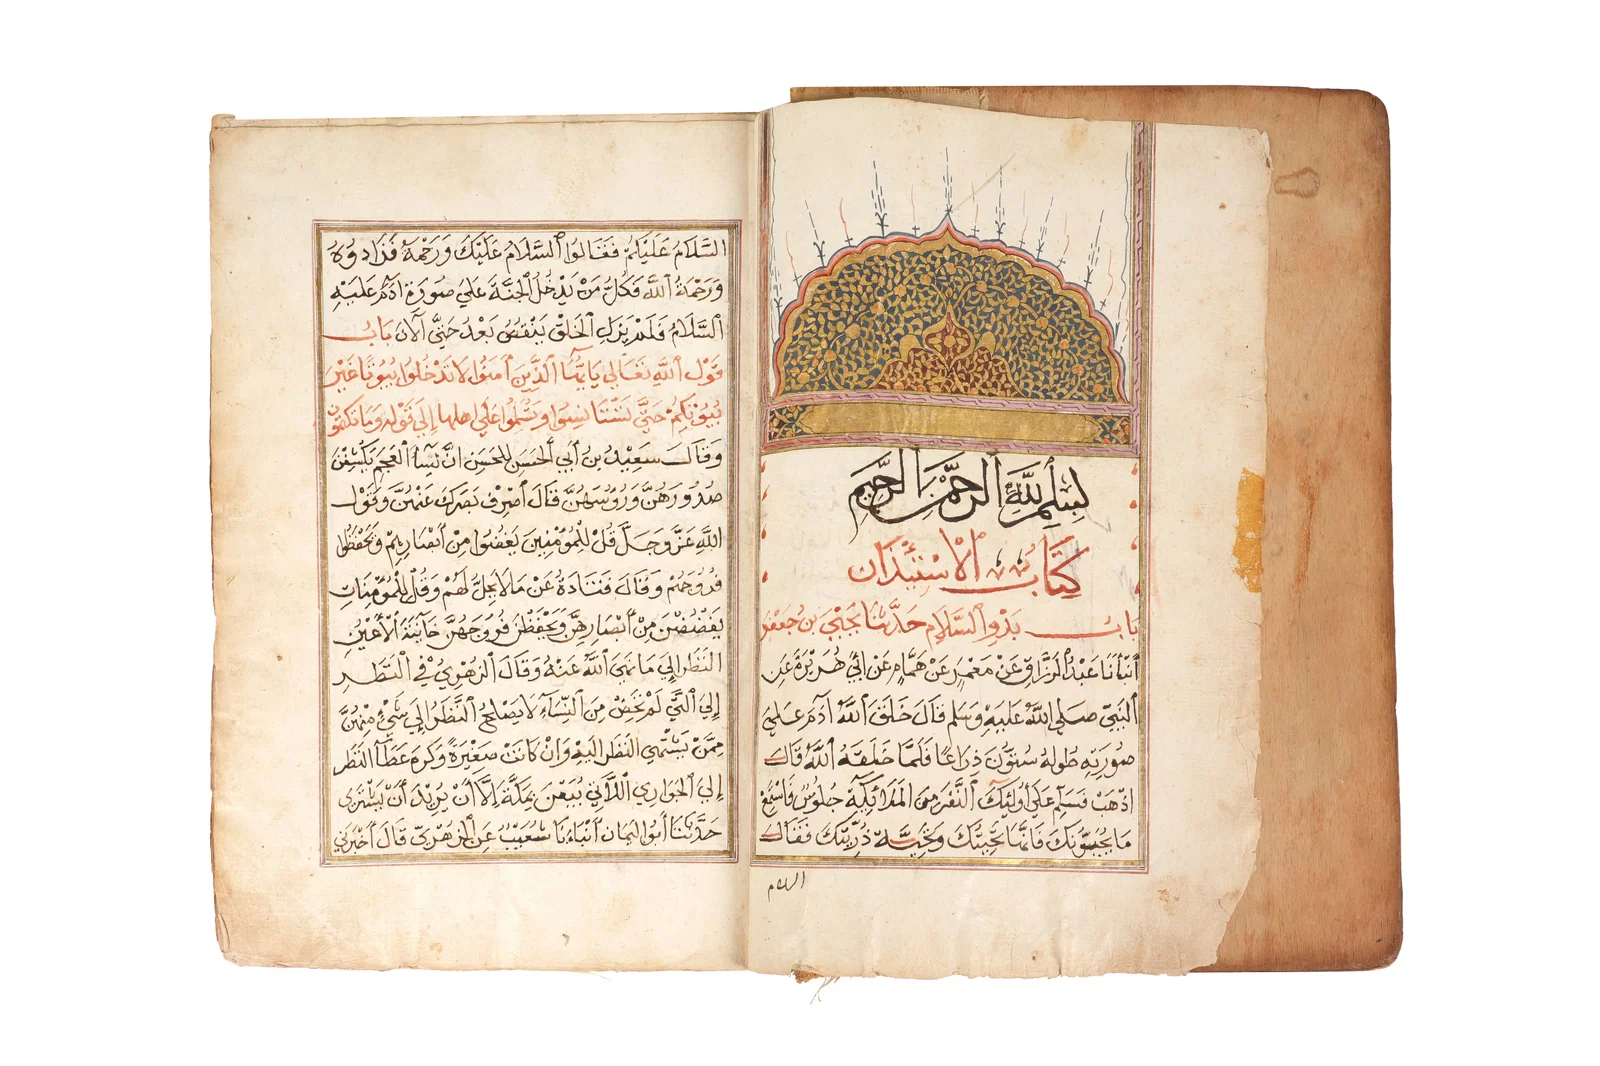 بِسْمِ اللَّهِ الرَّحْمَنِ الرَّحِيمِ
كِتَابُ الْاسْتِئْذَان
بَابُ بَدْوِ السَّلَامِ حَدَّثَنَا يَحْيَى بن جَعْفَر
أَنْبَأَنَا عَبْدُ الرَّزَاقِ عَنْ مَعْمَرٍ عَنْ هَمَّامٍ عَنْ أَبِي هُرَيْرَةَ عَنِ
النَّبِيِّ صَلى اللَّهُ عَلَيْهِ وَسَلم قَالَ خَلَقَ اللَّهُ آدَمَ عَلَى
صُورَتِهِ طُولهُ سِتُّونَ ذِرَاعًا فَلَمَّا خَلَقَهُ اللَّهُ قَالَ
اذْهَبْ فَسَلِّمْ عَلَى أُولَئِكَ النَّفَرِ مِنَ الْمَلَائِكَةِ جُلُوسٌ فَاسْتَمِعْ
مَا يُحَيُّونَكَ فَإِنَّهَا تَحِيَّتُكَ وَتَحِيَّةُ ذُرِّيَّتِكَ فَقَالَ
السلام
السَّلَامُ عَلَيْكُمْ فَقَالُوا السَّلَامُ عَلَيْكَ وَرَحْمَةُ فَزَادُوهُ
وَرَحْمَةُ اللَّهِ فَكُلُّ مَنْ يَدْخُلُ الْجَنَّةَ عَلَى صُورَةِ آدَمَ عَلَيْهِ
السَّلَامُ فَلَمْ يَزَلِ الْخَلْقُ يَنْقُصُ بَعْدُ حَتَّى الْآنَ بَابُ
قَوْلِ اللَّهِ تَعَالَى يَا أَيُّهَا الَّذِينَ آمَنُوا لَا تَدْخُلُوا بُيُوتًا غَيْرَ
بُيُوتِكُمْ حَتَّى تَسْتَأْنِسُوا وَتُسَلِّمُوا عَلَى أَهْلِهَا إِلَى قَوْلِهِ وَمَا تَكْتُمُون
وَقَالَ سَعِيْدُ بن أَبِي الْحَسَنِ لِلْحَسَنِ انَّ نِسَاَ الْعَجَمِ يَكْشِفْنَ
صُدُورَهُنَّ وَرُوُسَهُنَّ قَالَ اصْرِفْ بَصَرَكَ عَنْهُنَّ وَقَوْل
اللَّهِ عَزَّ وَجَلَّ قُلْ لِلْمُؤْمِنِينَ يَغُضُّوا مِنْ أَبْصَارِهِمْ وَيَحْفَظُوا
فُرُوجَهُمْ وَقَالَ قَتَادَةُ عَنْ مَا لَا يَحِلُّ لَهُمْ وَقُلْ لِلْمُؤْمِنَاتِ
يَغْضُضْنَ مِنْ أَبْصَارِهِنَّ وَيَحْفَظْنَ فُرُوجَهُنَّ خَائِنَةَ الْأَعْيُنِ
النَّظَر إِلَى مَا نَهَى اللَّهُ عَنْهُ وَقَالَ الزُّهْرِيُّ فِي النَّظَرِ
إِلَى الَّتِي لَمْ تَحِضْ مِنَ النِّسَاءِ لَا يَصْلُحُ النَّظَرُ إِلَى شَيْءٍ مِنْهُنَّ
مِمَّنْ يُشْتَهَى النَّظَر الَيْهِ وَانْ كَانَتْ صَغِيْرَةً وَكَرِهَ عَطَآ النَّظَرَ
إِلَى الْجَوَارِي اللَّاتِي يُبَعْنَ بِمَكَّةَ إِلَّا أَنْ يُرِيْدَ أَنْ يَشْتَرِى
حَدَّثَنَا أَبُو الْيَمَان أَنْبَاءَنَا شُعَيْبٌ عَنِ الزُّهْرِيّ قَالَ أَخْبَرَنِي